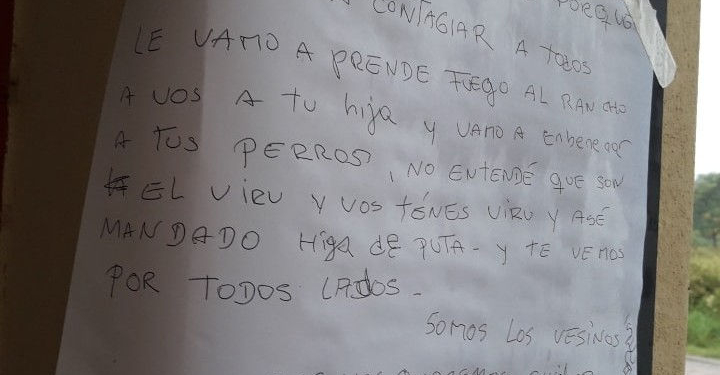 CONTAGIAR A TODOS PORQUE
LE VAMO A PRENDE FUEgO AL RANCHO
A VOS A tu hija y VAMO A Enbenenar
A TUS PERROS, NO ENTENDÉ QUE SON
EL VIRU Y VOS TÉNES VIRU Y ASÉ
MANDADO Higa de PUTA - Y TE VEMOS
POR TODOS LADOS -
SOMOS LOS VESINOS